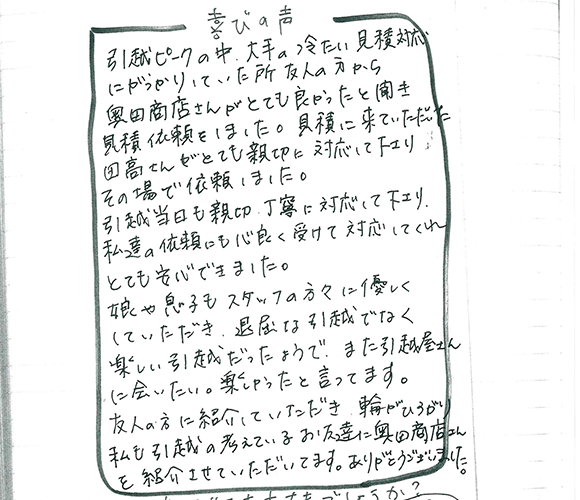 喜びの声
引越ピークの中、大手の冷たい見積対応
にがっかりしていた所 友人の方から
奥田商店さんがとても良かったと聞き
見積依頼をしました。見積に来ていただいた
田高さんがとても親切に対応して下エリ
その場で依頼しました。
引越当日も親切、丁寧に対応して下エリ、
私達の依頼にも心良く受けて対応してくれ
とても安心できました。
娘や息子もスタッフの方々に優しく
していただき、退屈な引越でなく
楽しい引越だったようで、また引越屋さん
に会いたい。楽しかったと言ってます。
友人の方に紹介していただき、輪がひろがり
私も引越の考えているお友達に奥田商店さん
を紹介させていただいてます。ありがとうございました。